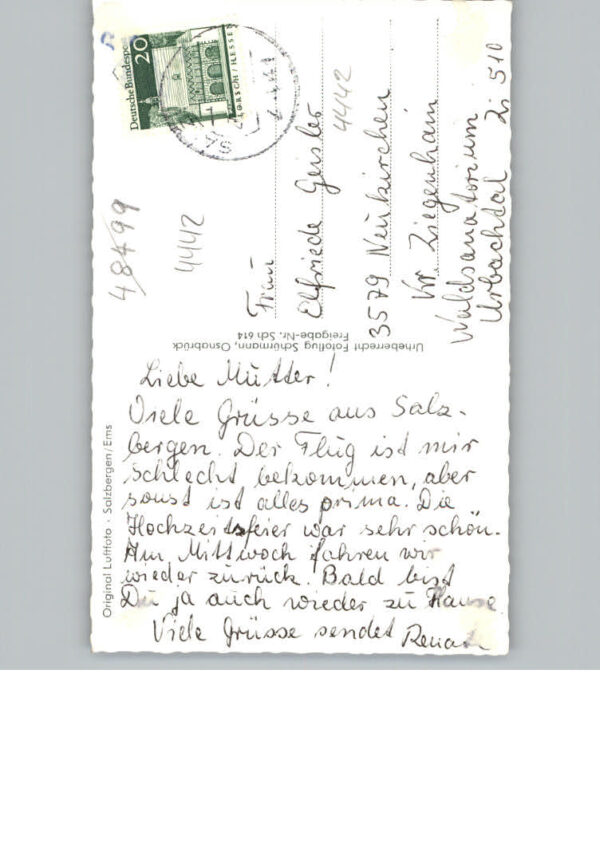 Liebe Mutter!
Viele Grüsse aus Salz-
bergen. Der Flug ist mir
schlecht bekommen, aber
sonst ist alles prima. Die
Hochzeitsfeier war sehr schön.
Am Mittwoch fahren wir
wieder zurück. Bald bist
Du ja auch wieder zu Hause
Viele Grüsse sendet
Frau
Elfriede Geisler
3579 Neukirchen
Kr. Ziegenhain
Waldsanatorium
Urbachtal Zi 510
4442
4442
48499
Deutsche Bundespost
20
LORSCH/HESSEN
Urheberrecht Fotoflug Schürmann, Osnabrück
Freigabe-Nr. Sch 614
Original Luftfoto · Salzbergen/Ems